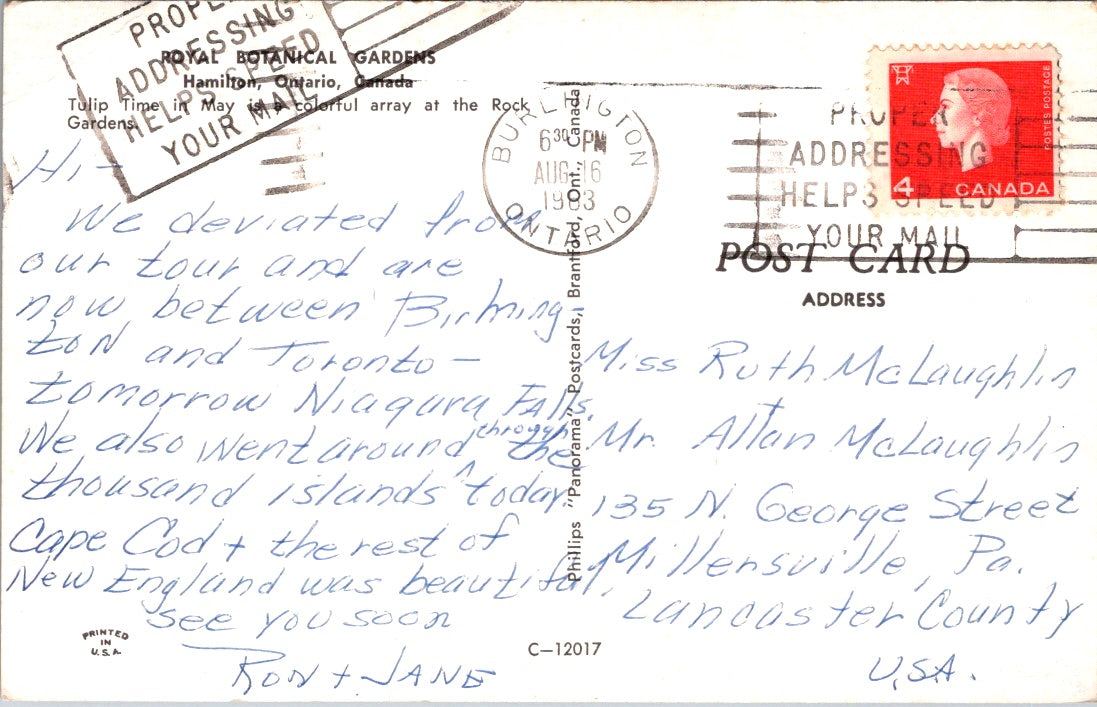 PROPER
ADDRESSING
HELPS SPEED
YOUR MAIL
ROYAL BOTANICAL GARDENS
Hamilton, Ontario, Canada
Tulip Time in May is a colorful array at the Rock
Gardens.
BURLINGTON
6 30 PM
AUG 16
1963
ONTARIO
PROPER
ADDRESSING
HELPS SPEED
YOUR MAIL
POSTES POSTAGE
4 CANADA
POST CARD
ADDRESS
Hi -
We deviated from
our tour and are
now between Birming-
ton and Toronto -
tomorrow Niagara Falls.
We also went around through the
thousand islands ^ today.
Cape Cod + the rest of
New England was beautiful.
see you soon
Ron + Jane
Phillips "Panorama" Postcards, Brantford, Ont., Canada
Miss Ruth McLaughlin
+
Mr. Allan McLaughlin
135 N. George Street
Millersville, Pa.
Lancaster County
U.S.A.
PRINTED
IN
U.S.A.
C-12017